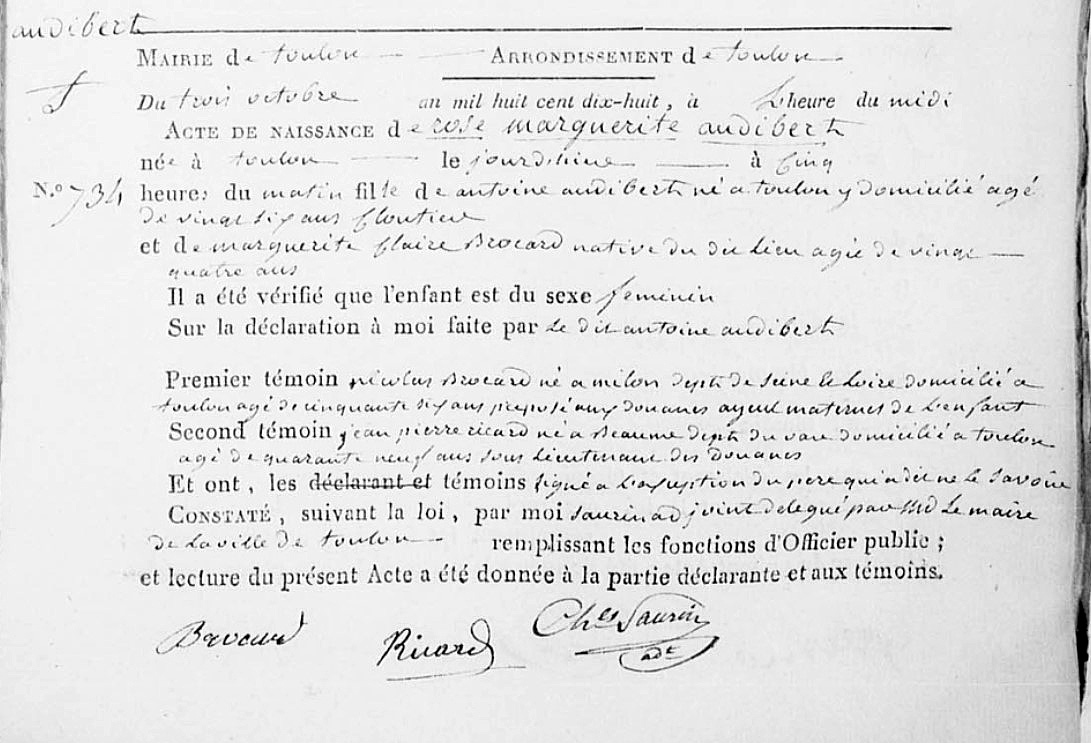 audibert
MAIRIE de toulon ARRONDISSEMENT de toulon
Du trois octobre an mil huit cent dix-huit, à L'heure du midi
ACTE DE NAISSANCE de rose marguerite audibert
née à toulon le jourdhine à Cinq
N.º 734 heures du matin fille de antoine audibert né a toulon y domicilié agé
de vingt six ans Cloutier
et de marguerite Claire Brocard native du dit Lieu agée de vingt
quatre ans
Il a été vérifié que l'enfant est du sexe feminin
Sur la déclaration à moi faite par Le dit antoine audibert
Premier témoin nicolas Brocard né a dept de Seine Loire domicilié a
toulon agé de cinquante six ans preposé aux douanes ayeul maternel de L'enfant
Second témoin jean pierre ricard né a Beaume dept du var domicilié a toulon
agé de quarante neuf ans sous Lieutenant des Douanes
Et ont, les déclarant et témoins signé a L'exeption du pere qui a dit ne le Savoir
CONSTATÉ, suivant la loi, par moi saurin adjoint delegué par Mr Le maire
de La ville de toulon remplissant les fonctions d'Officier public ;
et lecture du présent Acte a été donnée à la partie déclarante et aux témoins.
Brocard Ricard Ch.es Saurin
adt